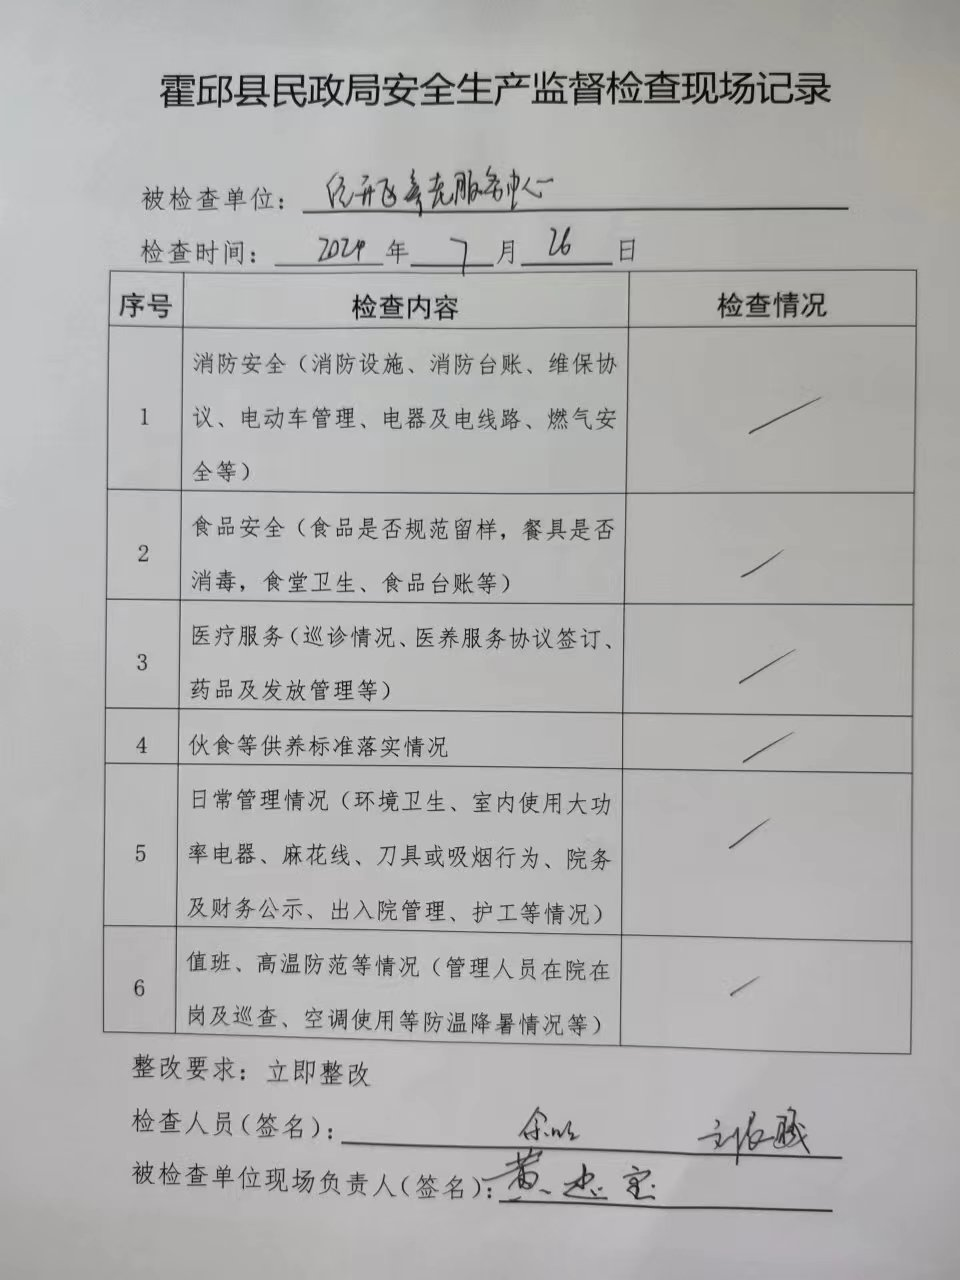 霍邱县民政局安全生产监督检查现场记录
被检查单位：经开区养老服务中心
检查时间：2024年7月26日
序号 检查内容 检查情况
1 消防安全（消防设施、消防台账、维保协
议、电动车管理、电器及电线路、燃气安
全等）
2 食品安全（食品是否规范留样，餐具是否
消毒，食堂卫生、食品台账等）
3 医疗服务（巡诊情况、医养服务协议签订、
药品及发放管理等）
4 伙食等供养标准落实情况
5 日常管理情况（环境卫生、室内使用大功
率电器、麻花线、刀具或吸烟行为、院务
及财务公示、出入院管理、护工等情况）
6 值班、高温防范等情况（管理人员在院在
岗及巡查、空调使用等防温降暑情况等）
整改要求：立即整改
检查人员（签名）：
被检查单位现场负责人（签名）：黄忠宝